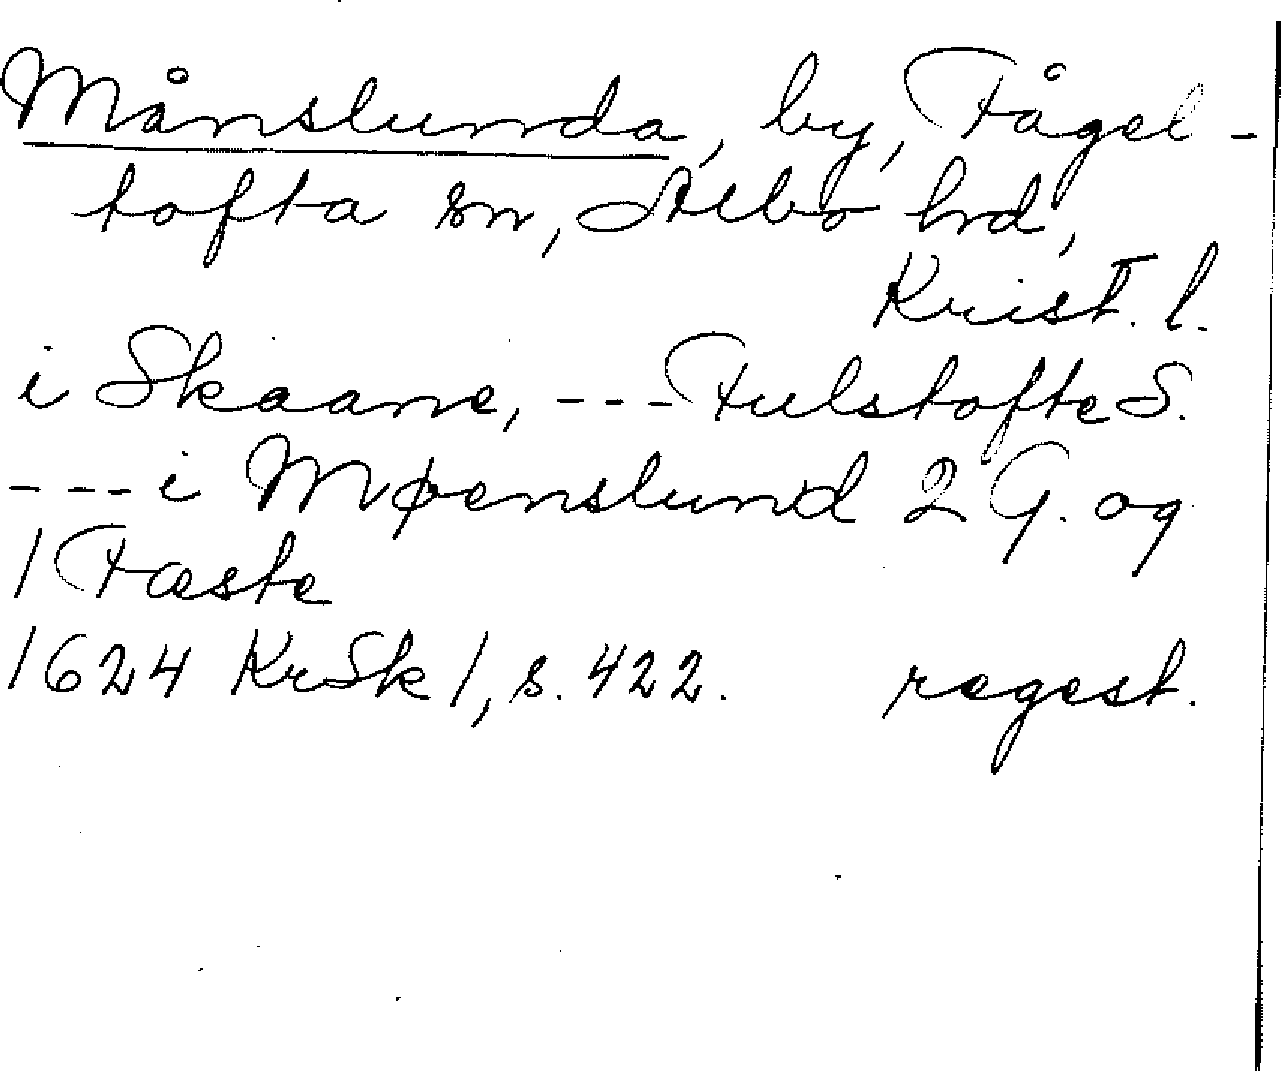 Månslunda, by, Fågel-
tofta sn, Albo hrd,
Krist. l.
i Skaane, --- Fulstofte S.
--- i Møenslund 2 G. og
1 Fæste
1624 KrSk 1, s. 422. regest.